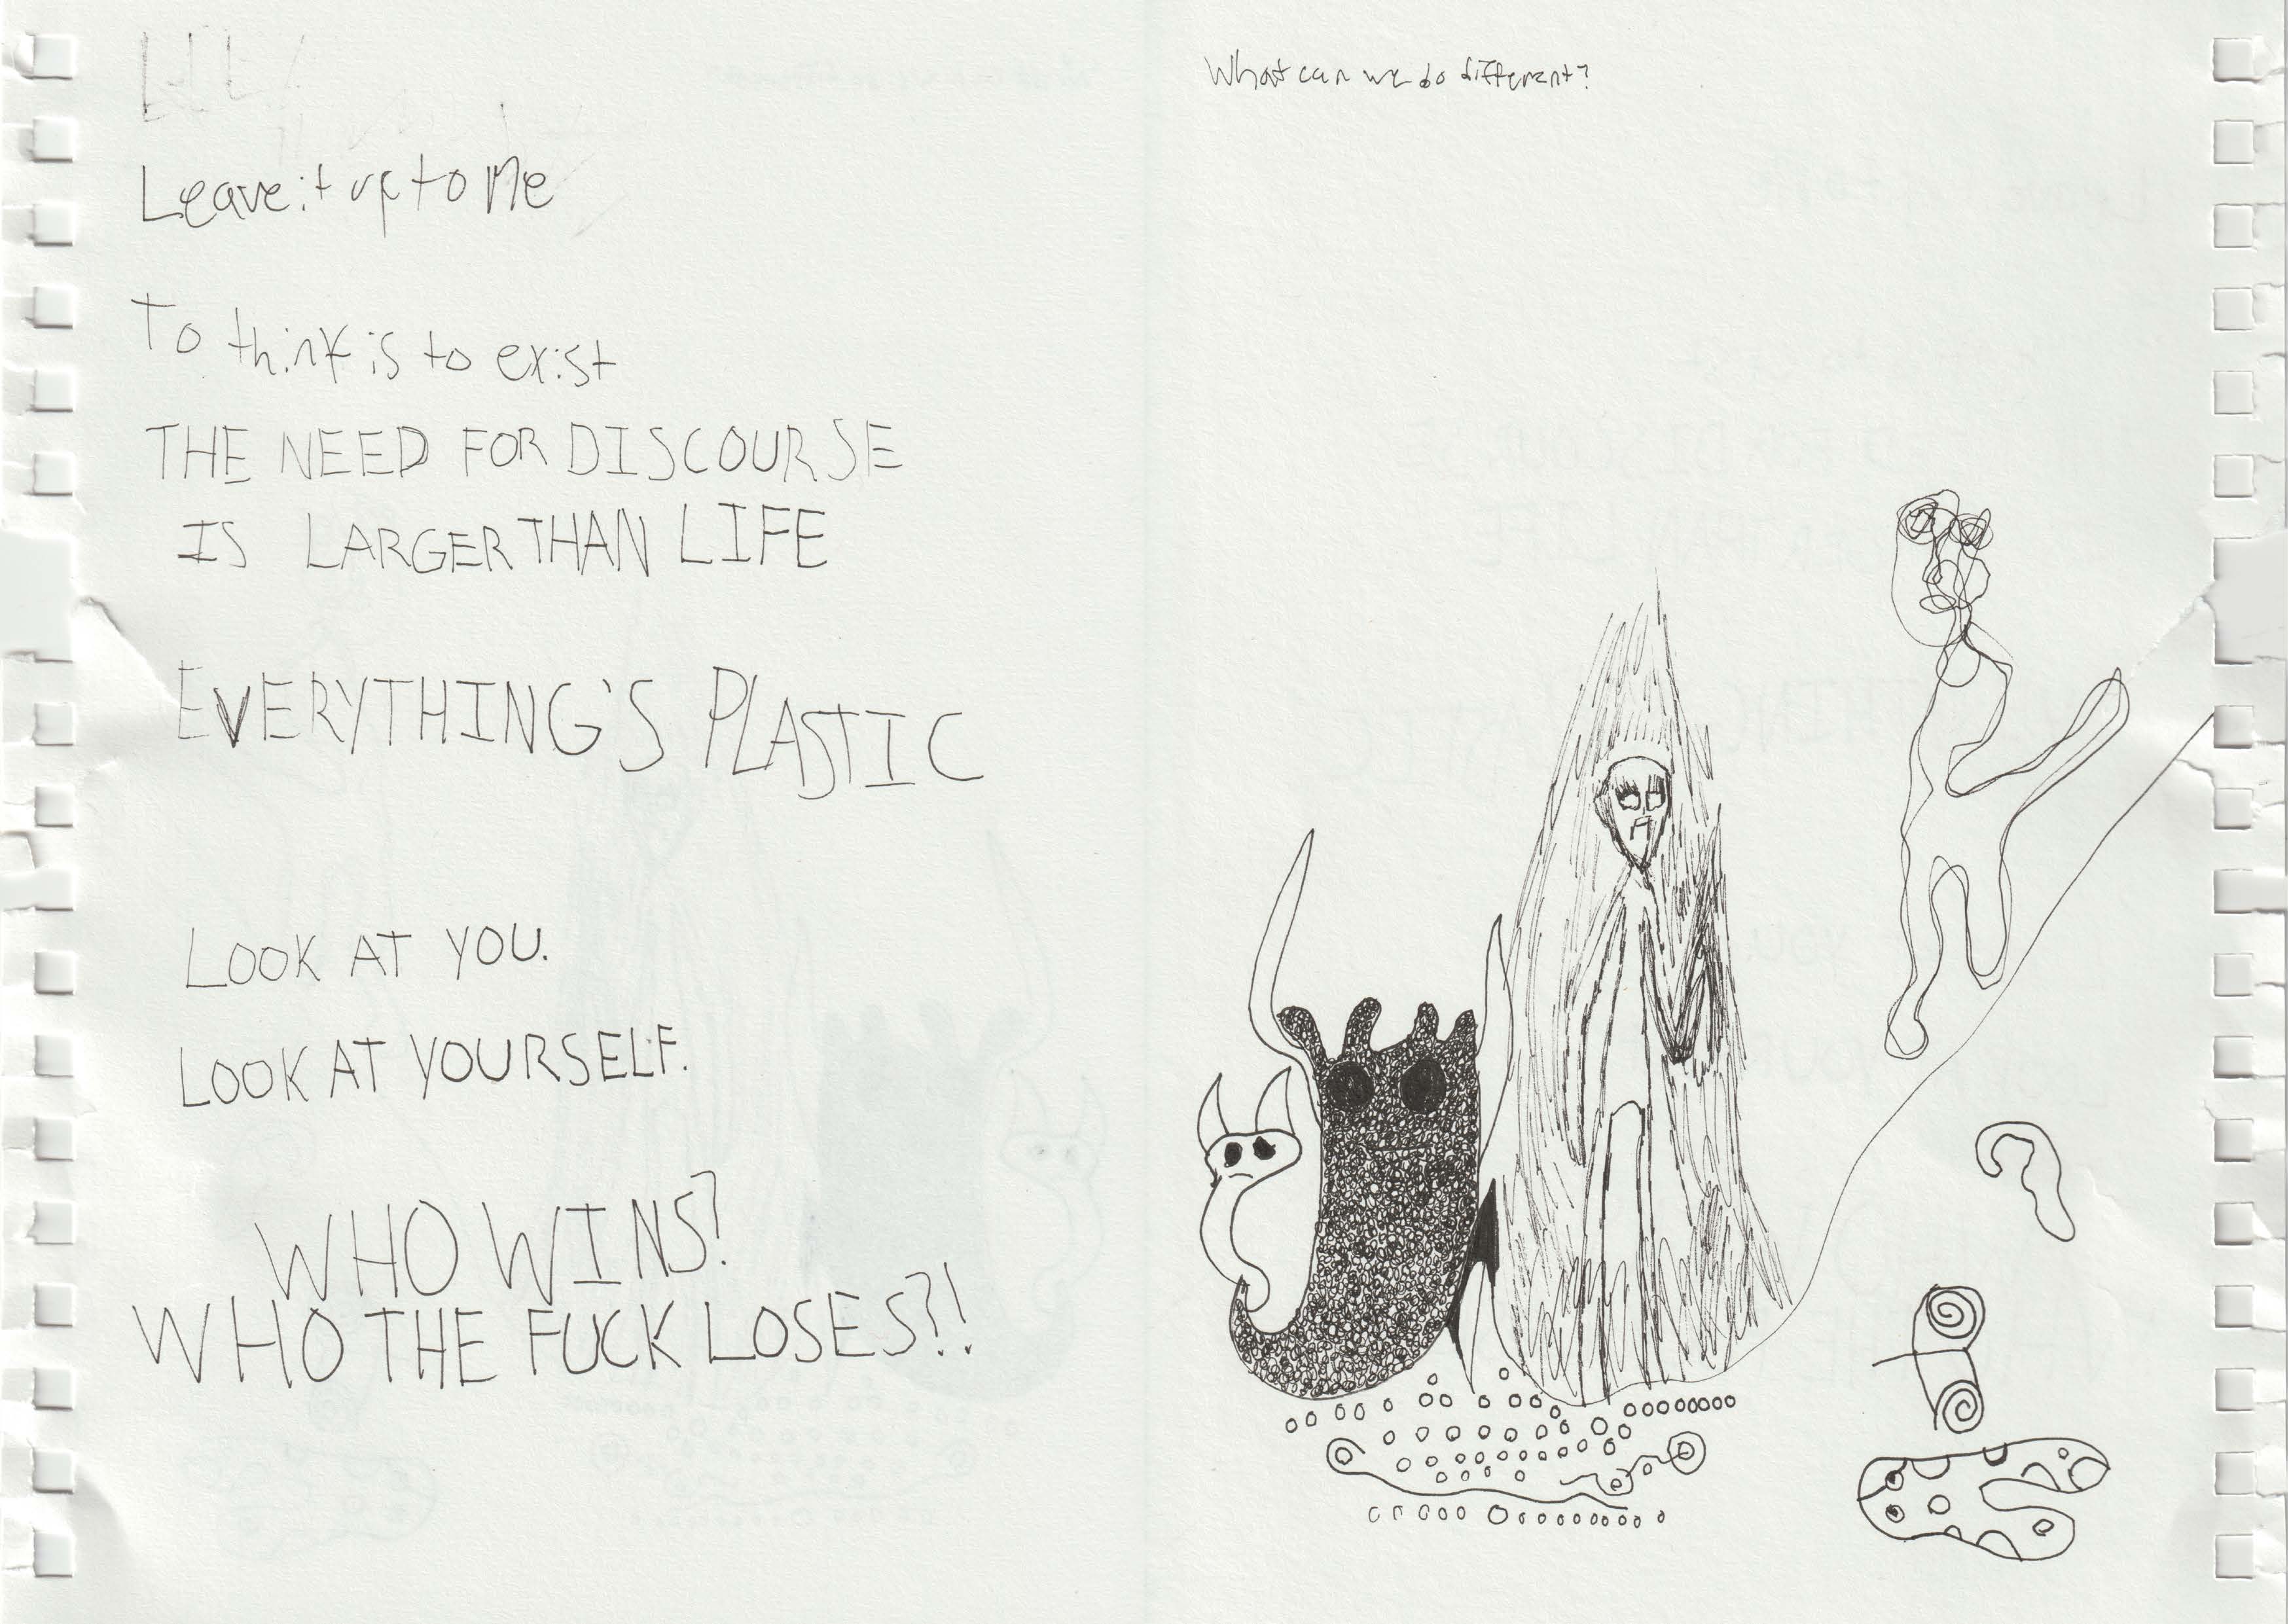 Leave it up to Me
To think is to exist
THE NEED FOR DISCOURSE
IS LARGER THAN LIFE
EVERYTHING'S PLASTIC
LOOK AT YOU.
LOOK AT YOURSELF.
WHO WINS?
WHO THE FUCK LOSES?!
What can we do different?